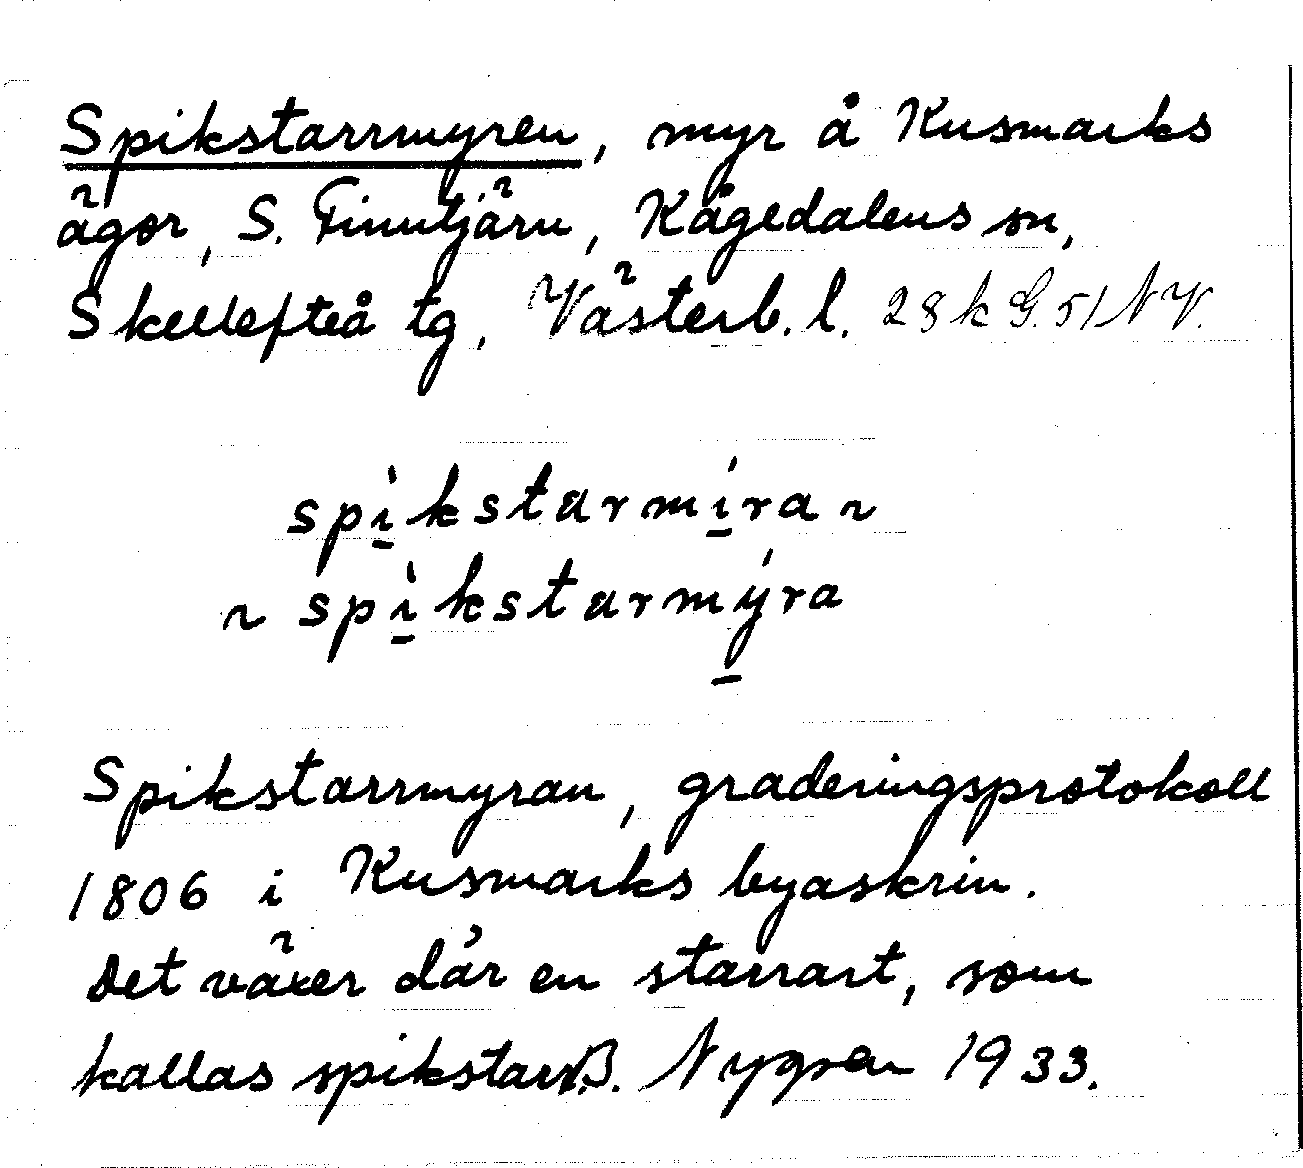 Spikstarrmyren, myr å Kusmarks
ägor, S. Finntjärn, Kågedalens sn,
Skellefteå tg, Västerb. l. 28 k G. 51 NV.
spi̱̍kstarmí̱ra ~
~ spi̱̍kstarmý̱ra
Spikstarrmyran, graderingsprotokoll
1806 i Kusmarks byaskrin.
Det växer där en starrart, som
kallas spikstarr. B. Nygren 1933.